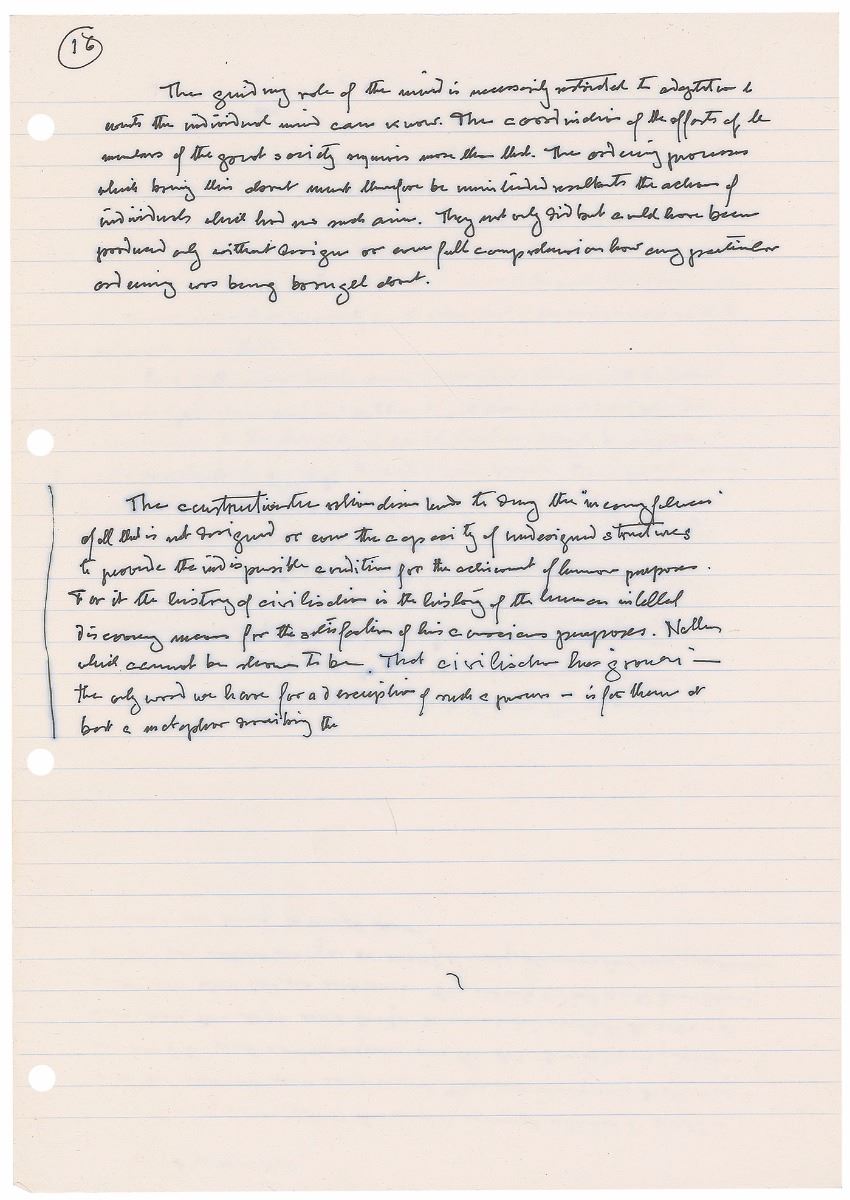 16
The guiding role of the mind is necessarily restricted to adaptation to
events the individual mind can know. The coordination of the efforts of the
members of the great society requires more than that. The ordering processes
which bring this about must therefore be unintended resultants the actions of
individuals which had no such aim. They not only did but could have been
produced only without design or even full comprehension how any particular
ordering was being brought about.
The constructivistic rationalism tends to deny the "meaningfulness"
of all that is not designed or even the capacity of undesigned structures
to provide the indispensible condition for the achievement of human purposes.
For it the history of civilisation is the history of the human intellect
discovering means for the satisfaction of his conscious purposes.
which cannot be shown to be. That civilisation has 'grown' —
the only word we have for a description of such a process — is for them at
best a metaphor describing the